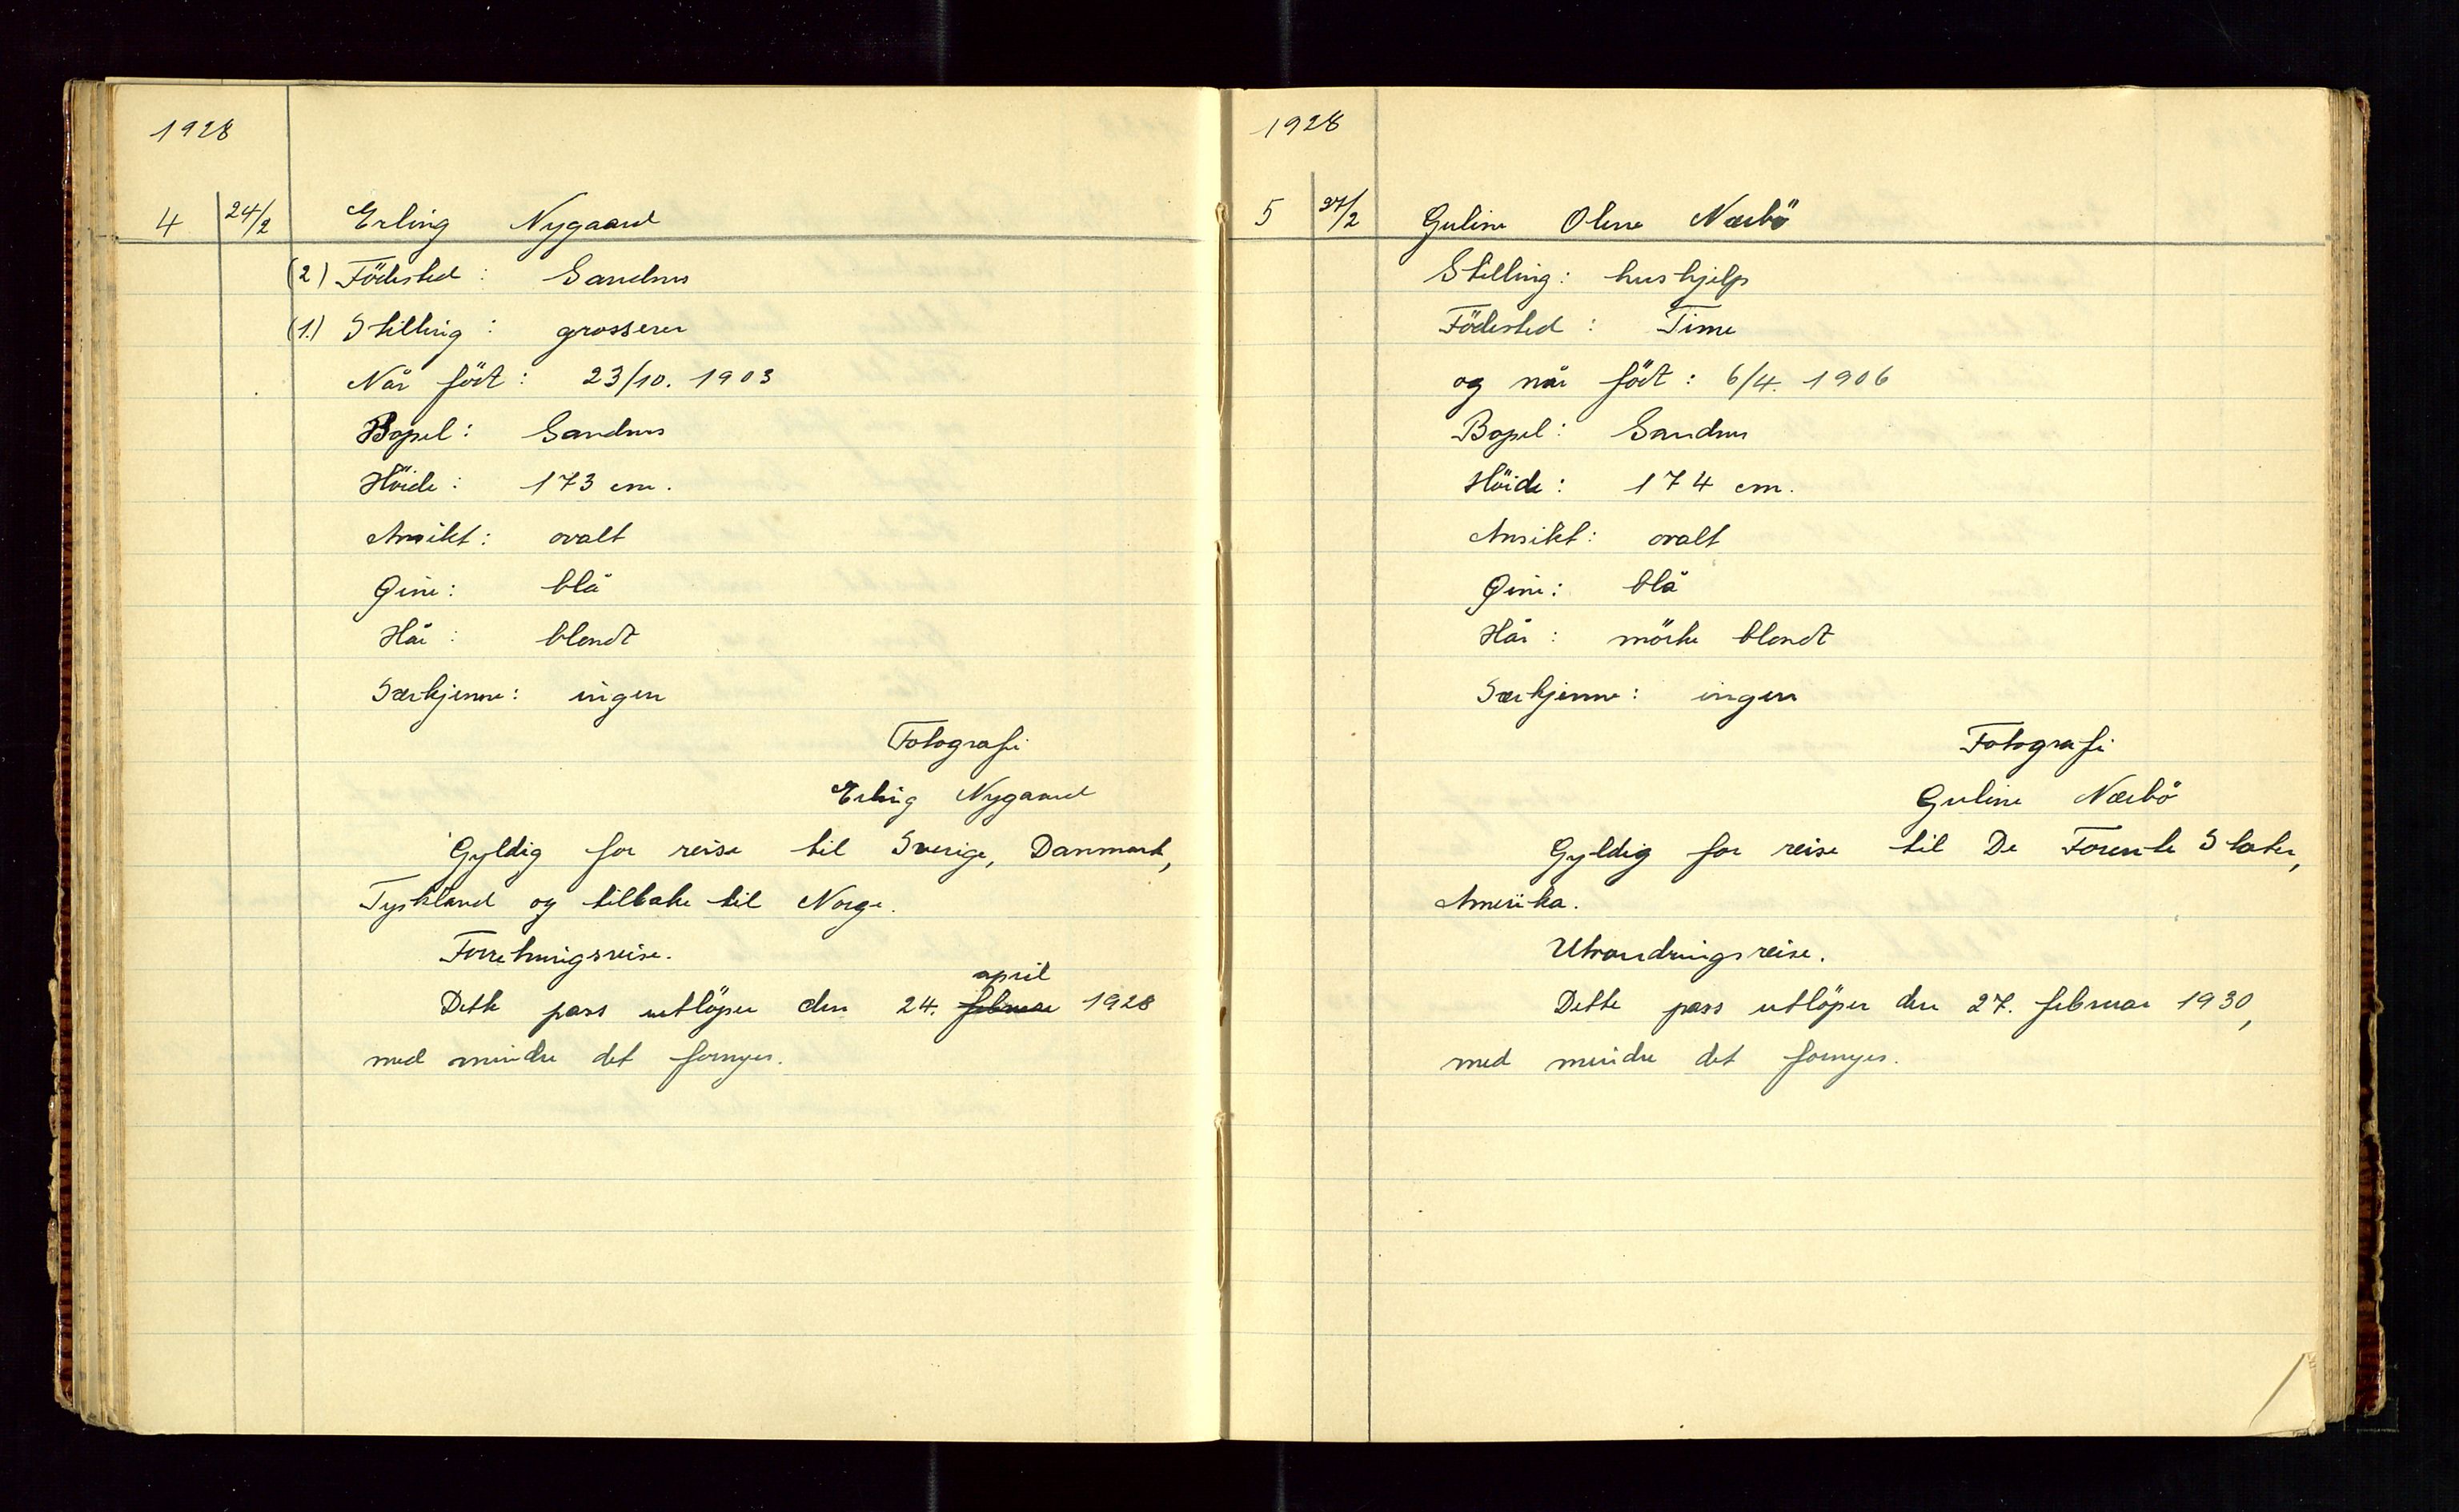 1928
4 24/2 Erling Nygaard
(2) Födested: Sandnes
(1.) Stilling: grosserer
Når födt: 23/10. 1903
Bopel: Sandnes
Höide: 173 cm.
Ansikt: ovalt
Öine: blå
Hår: blondt
Særkjenne: ingen
Fotografi
Erling Nygaard
Gyldig for reise til Sverige, Danmark,
Tyskland og tilbake til Norge.
Forretningsreise.
april
Dette pass utlöper den 24. februar 1928
med mindre det fornyes.
1928
5 27/2 Guline Oline Nærbö
Stilling: hushjelp
Födested: Time
og når födt: 6/4. 1906
Bopel: Sandnes
Höide: 174 cm.
Ansikt: ovalt
Öine: blå
Hår: mörke blondt
Særkjenne: ingen
Fotografi
Guline Nærbö
Gyldig for reise til De Forente Stater,
Amerika.
Utvandringsreise.
Dette pass utlöper den 27. februar 1930,
med mindre det fornyes.